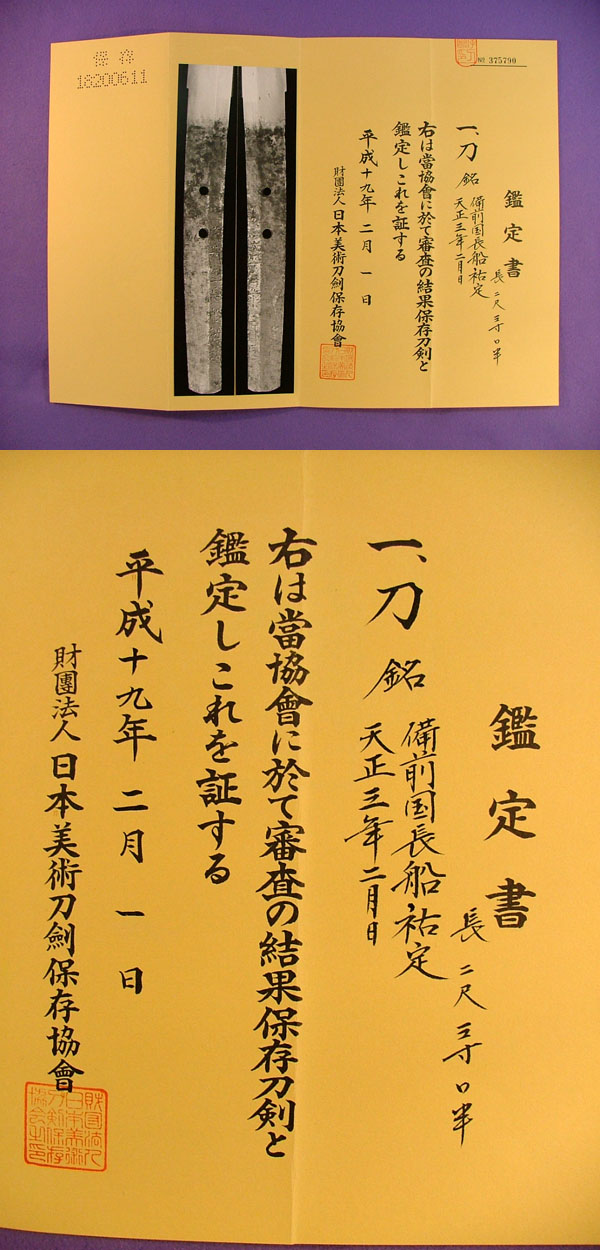 保存
18200611
№ 375790
鑑定書
長 二尺三寸〇半
一、刀 銘 備前国長船祐定
天正三年二月日
右は當協會に於て審査の結果保存刀剣と
鑑定しこれを証する
平成十九年 二月 一日
財團法人 日本美術刀劍保存協會
鑑定書
長 二尺 三寸 〇半
一、刀 銘 備前国長船祐定
天正三年二月日
右は當協會に於て審査の結果保存刀剣と
鑑定しこれを証する
平成十九年 二月 一日
財團法人 日本美術刀劍保存協會
財団法人
日本美術
刀剣保存
協会之印